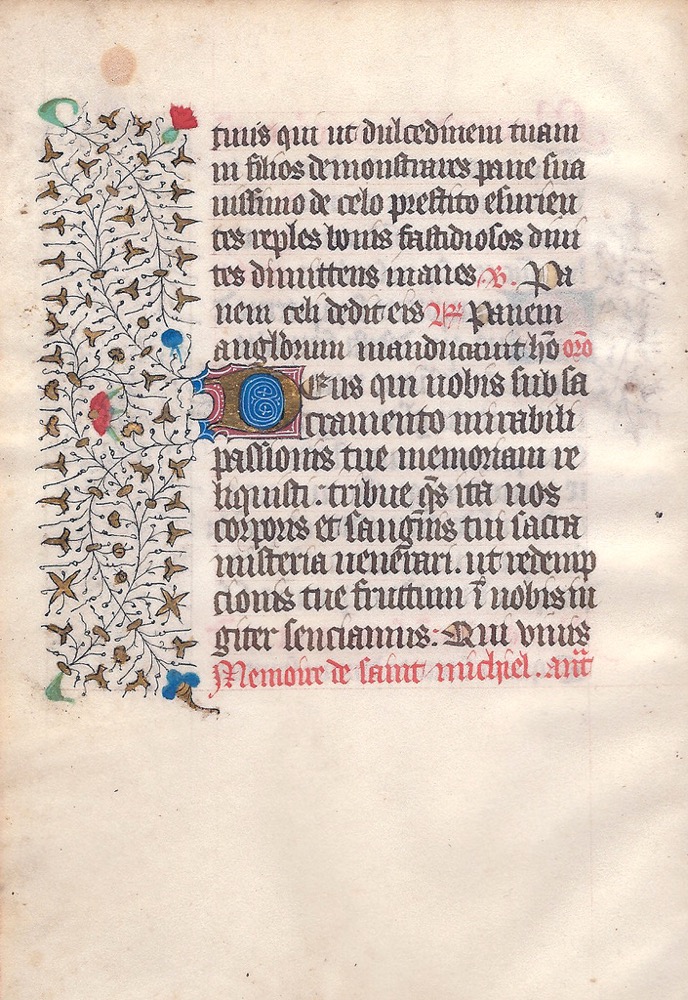 tuus qui ut dulcedinem tuam
in filios demonstrares pane sua
uissimo de celo prestito esurien
tes reples bonis fastidiosos diui
tes dimittens inanes. V. Pa
nem celi dedit eis R Panem
anglorum manducauit hō orō
Deus qui nobis sub sa
cramento mirabili
passionis tue memoriam re
liquisti: tribue q̄s ita nos
corporis et sanguīs tui sacra
misteria uenērari. ut redemp
cionis tue fructum ī nobis iu
giter senciamus: Qui viuis
Memoire de saint michiel. anā